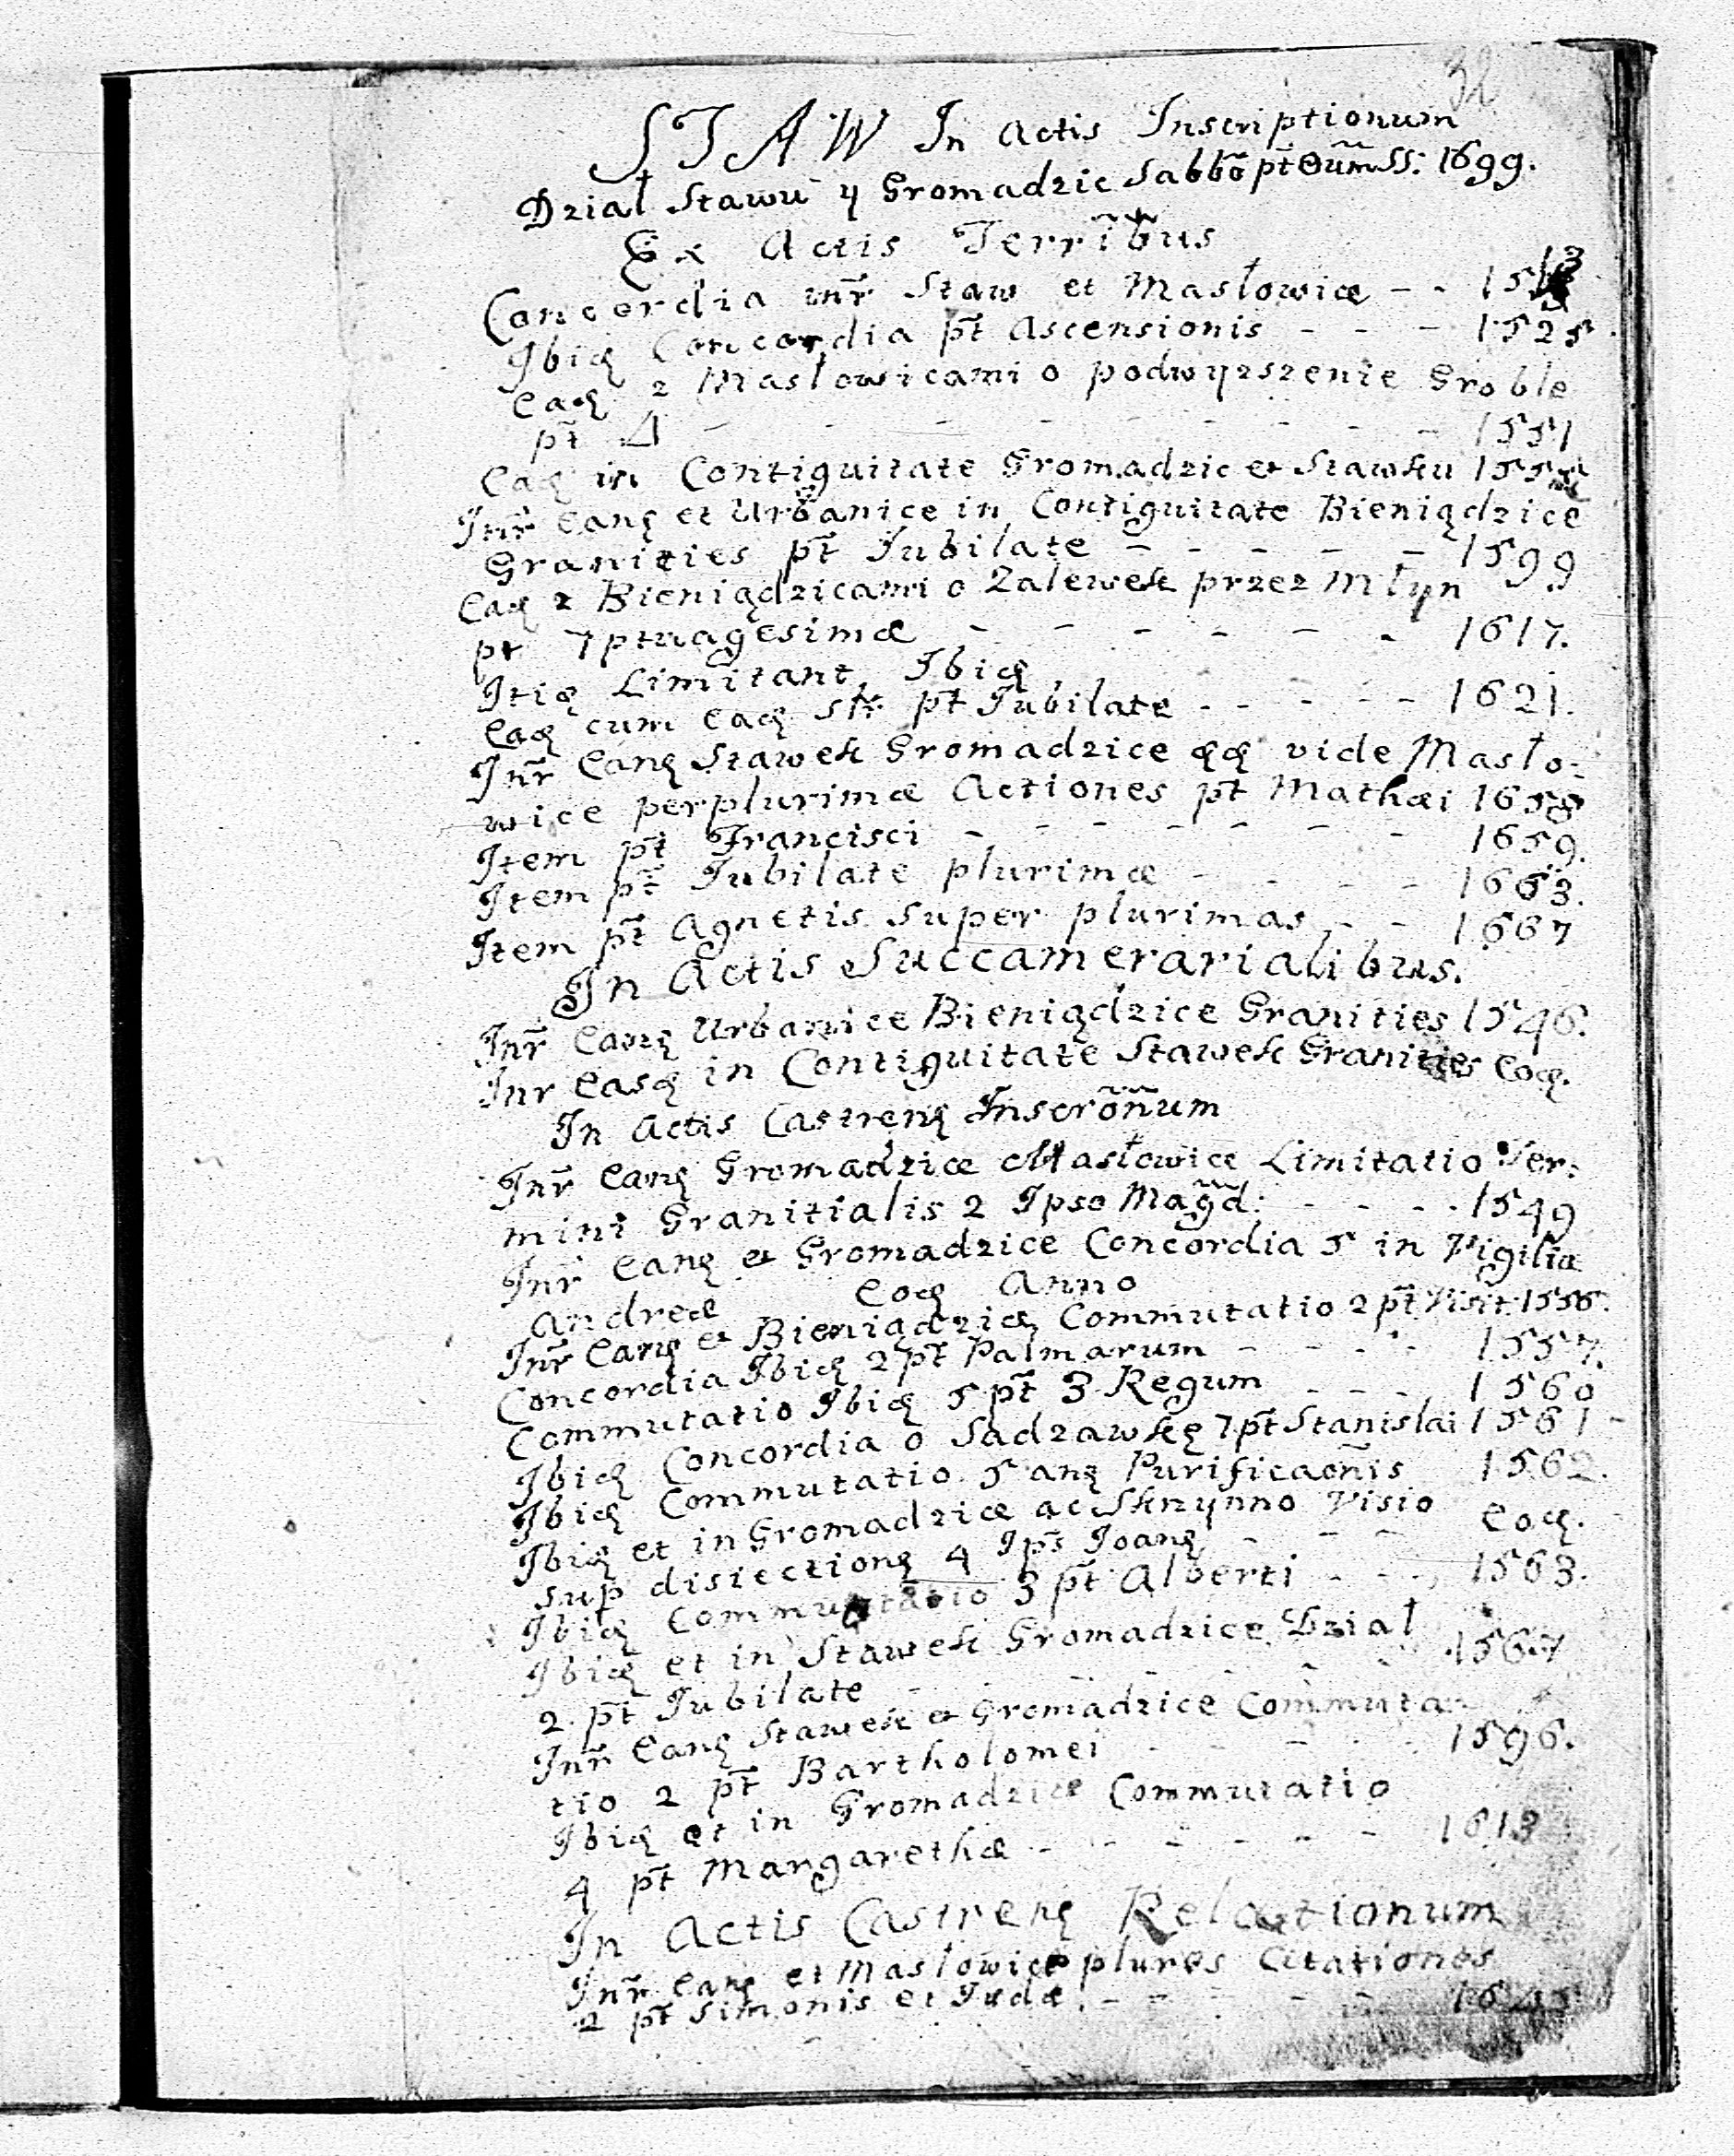 32
STAW In Actis Inscriptionum
Dział Stawu y Gromadzic Sabbō pt̃ Oum̃ SS: 1699.
Ex Actis Terrib̃us
Concordia inr̃ Staw et Masłowice - - 
Ibiq Concordia pt̃ Ascensionis - - - 1525
Eaq z Masłowicami o podwyzszenie Groble
pt̃ - - - - - 1551
Eaq in Contiguitate Gromadzic et Stawku
Inr̃ Eanq et Urbanice in Contiguitate Bieniądzice
Granities pt̃ Iubilate - - - - - 1599
Eaq z Bieniądzicami o Zalewek przez Młyn
pt 7ptuagesimæ - - - - - - 1617.
Itiq Limitant, Ibiq
Eaq cum Eaq str̃ pt̃ Iubilate - - - - - 1621.
Inr̃ Eanq Stawek Gromadzice qq vide Masło-
wice perplurimæ Actiones pt̃ Mathæi 1658
Item pt̃ Francisci - - - - - - - 1659.
Item pt̃ Iubilate plurimæ - - - - 1663.
Item pt̃ Agnetis super plurimas - - 1667
In Actis Succamerarialibus.
Inr̃ Eanq Urbanice Bieniądzice Granities 1546.
Inr Easq in Contiguitate Stawek Granities Eoq.
In Actis Castrenq Inscrõnum
Inr̃ Eanq Gromadzice Masłowice Limitatio Ter-
mini Granitialis 2 Ipso Mag̃d: - - - - 1549
Inr̃ Eanq et Gromadzice Concordia 5 in Vigilia
Andreæ Eoq Anno
Inr̃ Eanq et Bieniądzice, Commutatio 2 pt̃ Visit: 1556.
Concordia Ibiq 2 pt̃ Palmarum - - - - 1557.
Commutatio Ibiq 5 pt̃ 3 Regum - - - 1560
Ibiq Concordia o Sadzawkę 7 pt̃ Stanislai 1561
Ibiq Commutatio 5 anq Purificaõnis 1562.
Ibiq et in Gromadzice ac Skrzynno Visio Eoq.
sup disiectionq 4 Ips̃ Ioanq - - -
Ibiq Commutatio 3 pt̃ Alberti - - - 1563.
Ibiq et in Stawek Gromadzice Dział
2 pt̃ Iubilate - - - - - - 1567
Inr̃ Eanq Stawek et Gromadzice Commuta-
tio 2 pt̃ Bartholomei - - - - 1596.
Ibiq et in Gromadzice Commutatio
4 pt̃ Margarethæ - - - - - - 1613
In Actis Castrenq Relationum
Inr̃ Eanq et Masłowice plures Citationes
2 pt̃ Simonis et Iudæ. - - - - -